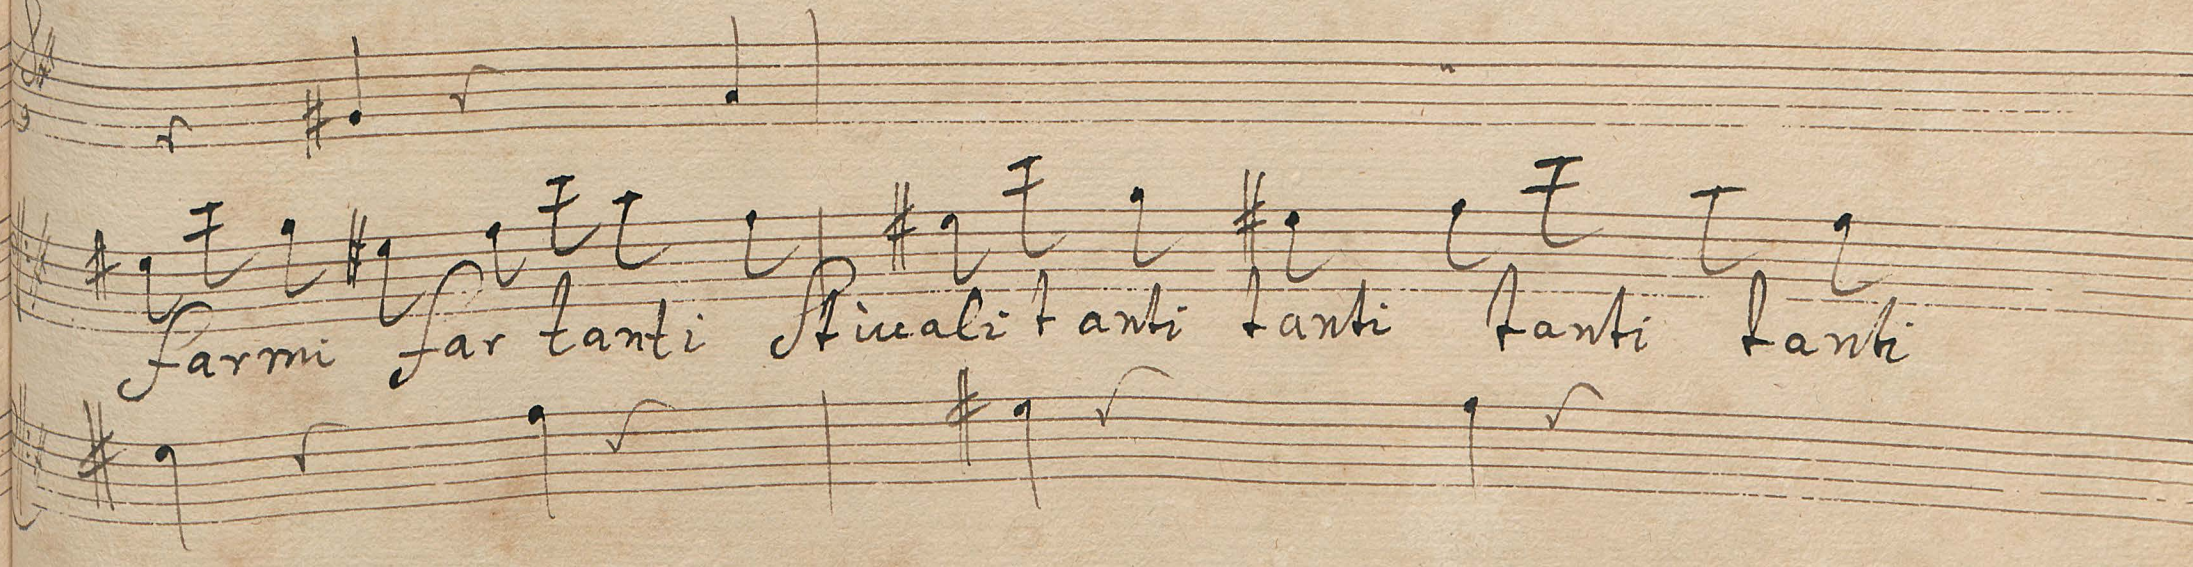 farmi far tanti stiuali tanti tanti tanti tanti